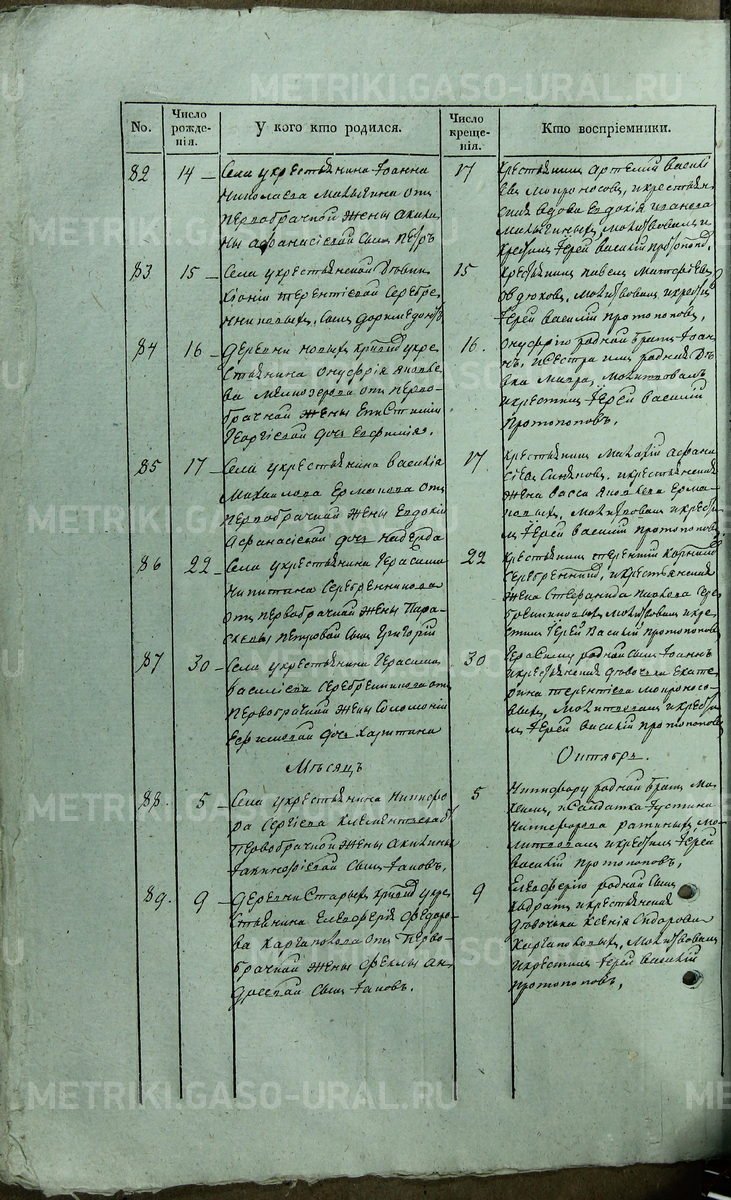 METRIKI.GASO-URAL.RU
No.
Число рожде-нія.
У кого кто родился.
Число креще-нія.
Кто воспріемники.
82
14 —
Села у крестьянина Іоанна
Николаева Малыгина отъ
первобрачной жены Акили-
ны Афанасіевой сынъ Петръ
17
Крестьянинъ Артемій Василі
евъ Мопроносовъ, и крестьян-
ская вдова Евдокія
Малыгиныхъ, молитвовалъ и
крестилъ Іерей Василій Протопоповъ.
83
15 —
Села у крестьянской дѣвки
Хіоніи Терентіевой Серебре-
нниковыхъ, сынъ Доримедонтъ
15
Крестьянинъ Павелъ Матфѣевъ
Овдюковъ, молитвовалъ и крестилъ
Іерей Василій Протопоповъ,
84
16 —
Деревни Новыхъ у кре-
стьянина Онуфрія Яковле-
ва Мелкозерова отъ перво-
брачной жены Епистиміи
Георгіевой дочь Евфимія.
16.
Онуфрію родной братъ Іоан-
нъ, и сестра имъ родная дѣ-
вка Мавра, молитвовалъ
и крестилъ Іерей Василій
Протопоповъ.
85
17 —
Села у крестьянина Василія
Михайлова Ермакова отъ
первобрачной жены Евдокіи
Афанасіевой дочь Надежда
17.
Крестьянинъ Михаилъ Афана
сіевъ и крестьянская
жена Васса Яковлева Ерма-
ковыхъ, молитвовалъ и крести-
лъ Іерей Василій Протопоповъ
86
22 —
Села у крестьянина Герасима
Никитина Серебренникова
отъ первобрачной жены Пара-
скевы Петровой сынъ Григорій
22
Крестьянинъ Терентій
Серебренниковъ, и крестьянская
жена Стефанида Павлова Сере-
бренниковыхъ молитвовалъ и кре-
стилъ Іерей Василій Протопоповъ
87
30 —
Села у крестьянина Герасима
Василіева Серебренникова отъ
первобрачной жены Соломоніи
Ефимовой дочь Харитина
30
Герасиму родной сынъ Іоаннъ
и крестьянская дѣвочка Екате-
рина Терентіева Мопроносо-
выхъ, молитвовалъ и крести-
лъ Іерей Василій Протопоповъ
Мѣсяцъ
Октябрь.
88.
5 —
Села у крестьянина Никифо-
ра Сергіева Клементьева отъ
первобрачной жены Акилины
сынъ Іаковъ.
5
Никифору родной братъ Ма-
ксимъ, и солдатка Іустина
Никифорова мо-
литвовалъ и крестилъ Іерей
Василій Протопоповъ.
89.
9 —
Деревни Старыхъ у кре
стьянина Елевферія Ѳедоро-
ва Каргаполова отъ перво-
брачной жены Ѳеклы Ан-
дреевой сынъ Іаковъ.
9
Елевферію родной сынъ
Кодратъ и крестьянская
дѣвочька Ксенія Сидорова
Каргаполовыхъ, молитвовалъ
и крестилъ Іерей Василій
Протопоповъ,